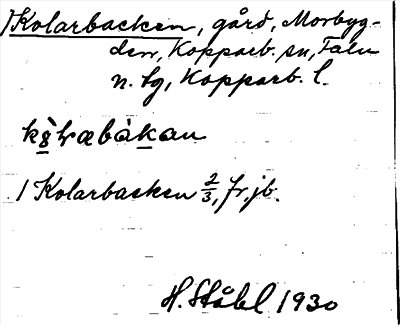 /Kolarbacken, gård, Morbyg-
den, Kopparb. sn, Falu
n. tg, Kopparb. l.
/ Kolarbacken 2/3, fr. jb.
H. Ståhl 1930